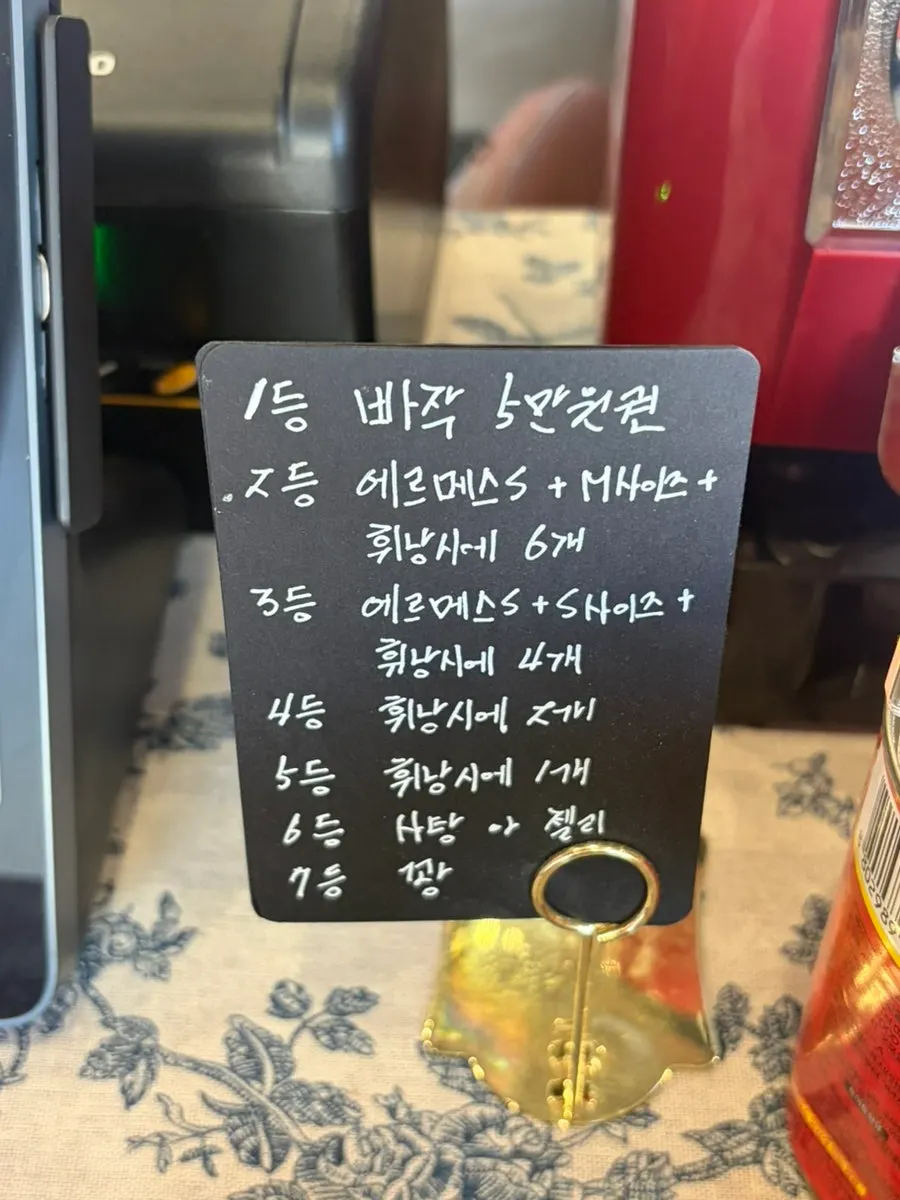 1등 빠작 5만원권
2등 에르메스S + M사이즈 +
휘낭시에 6개
3등 에르메스S + S사이즈 +
휘낭시에 4개
4등 휘낭시에 2개
5등 휘낭시에 1개
6등 사탕 or 젤리
7등 꽝